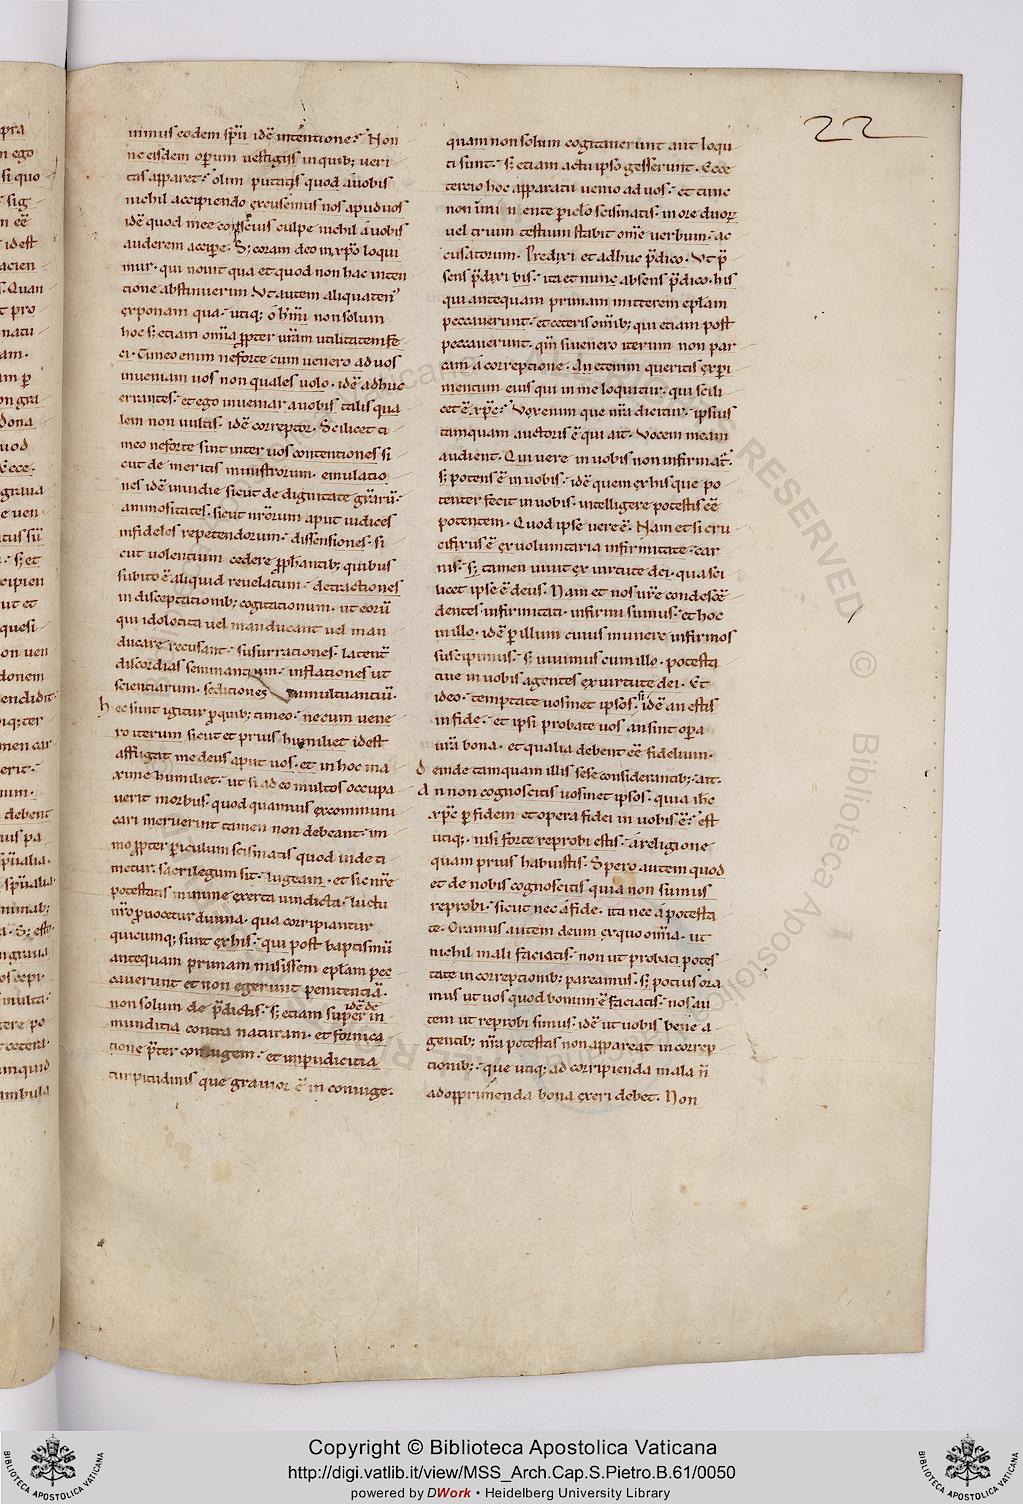 22
nimus eodem spū idē intentione. Non
ne eisdem operum uestigiis in quib; ueri
tas apparet. olim putatis quod a uobis
nichil accipiendo excusemus nos apud uos
idē quod mee conscius culpe nichil a uobis
auderem accipe. S; coram deo in xp̄o loqui
mur. qui nouit qua et quod non hac inten
tione abstinuerim. Ut autem aliquaten
exponam qua. utiq; o kmi non solum
hoc s; etiam om̄ia ppter ur̄am utilitatem fe
ci. Timeo enim ne forte cum uenero ad uos
inueniam uos non quales uolo. idē adhuc
errantes. et ego inueniar a uobis talis qua
lem non uultis. idē correptor. Scilicet ti
meo ne forte sint inter uos contentiones si
cut de meritis ministrorum. emulatio
nes idē inuidie sicut de dignitate gr̄arū.
animositates. sicut ur̄orum aput iudices
infideles repetendorum. dissensiones. si
cut uolentium cedere pphantib; quibus
subito ē aliquid reuelatum. detractiones
in disceptationib; cogitationum. ut eorū
qui idolotita uel manducant uel man
ducare recusant. susurrationes. latent̄
discordias seminantium. inflationes ut
scientiarum. seditiones tumultuantiū.
hec sunt igitur p quib; timeo. ne cum uene
ro iterum sicut et prius humiliet id est
affligat me deus aput uos. et in hoc ma
xime humiliet. ut si adeo multos occupa
uerit morbus. quod quamuis excommuni
cari meruerint tamen non debeant. im
mo ppter periculum scismatis quod inde ti
metur. sacrilegum sit. lugeam. et sic nr̄e
potestatis minime exerta uindicta. luctu
nr̄o puocetur diuina. qua corripiantur
quicumq; sunt ex his. qui post baptismū
antequam primam misissem ep̄lam pec
cauerunt et non egerunt penitentiā.
non solum de p̄dictis. s; etiam super in
idē de
munditia contra naturam. et fornica
tione p̄ter coniugem. et impudicitia
turpitudinis que grauior ē in coniuge.
quam non solum cogitauerunt aut loqu
ti sunt. s; etiam actu ipso gesserunt. Ecce
tercio hoc apparatu uenio ad uos. et tunc
non imminente periclo scismatis. in ore duor̄
uel trium testium stabit om̄e uerbum. ac
cusatorum. Predixi et adhuc p̄dico. Ut p̄
sens p̄dixi bis. ita et nunc absens p̄dico. his
qui antequam primam mitterem ep̄lam
peccauerunt. et ceteris omīb; qui etiam post
peccauerunt. qm̄ si uenero iterum non par
cam a correptione. An etenim queritis experi
mentum eius qui in me loquitur. qui scili
cet ē xp̄c. Vox enim que mīa dicitur. ipsius
tamquam auctoris ē qui ait. Uocem meam
audient. Qui uere in uobis non infirmat̄.
s; potens ē in uobis. idē quem ex his que po
tenter fecit in uobis. intelligere potestis eē
potentem. Quod ipse uere ē. Nam et si cru
cifixus ē ex uoluntaria infirmitate. car
nis. s; tamen uiuit ex uirtute dei. qua sci
licet ipse ē deus. Nam et nos ur̄e condescē
dentes infirmitati. infirmi sumus. et hoc
in illo. idē p illum cuius munere infirmos
suscipimus. s; uiuimus cum illo. potesta
tiue in uobis agentes ex uirtute dei. Et
ideo. temptate uosmet ipsos. si idē an estis
in fide. et ipsi probate uos an sint opera
ur̄a bona. et qualia debent eē fidelium.
deinde tamquam illis sese considerantib;. ait.
An non cognoscitis uosmet ipsos. quia ih̄c
xp̄c p fidem et opera fidei in uobis ē. est
utiq; nisi forte reprobi estis. a religione
quam prius habuistis. Spero autem quod
et de nobis cognoscitis quia non sumus
reprobi. sicut nec a fide. ita nec a potesta
te. Oramus autem deum ex quo om̄ia. ut
nichil mali faciatis. non ut probati potes
tate in correptionib; pareamus. s; potius ora
mus ut uos quod bonum ē faciatis. nos au
tem ut reprobi simus. idē ut uobis bene a
gentib; nr̄a potestas non appareat in correp
tionib;. que utiq; ad corripienda mala n̄
ad opprimenda bona exeri debet. Non
Copyright © Biblioteca Apostolica Vaticana
http://digi.vatlib.it/view/MSS_Arch.Cap.S.Pietro.B.61/0050
powered by DWork • Heidelberg University Library